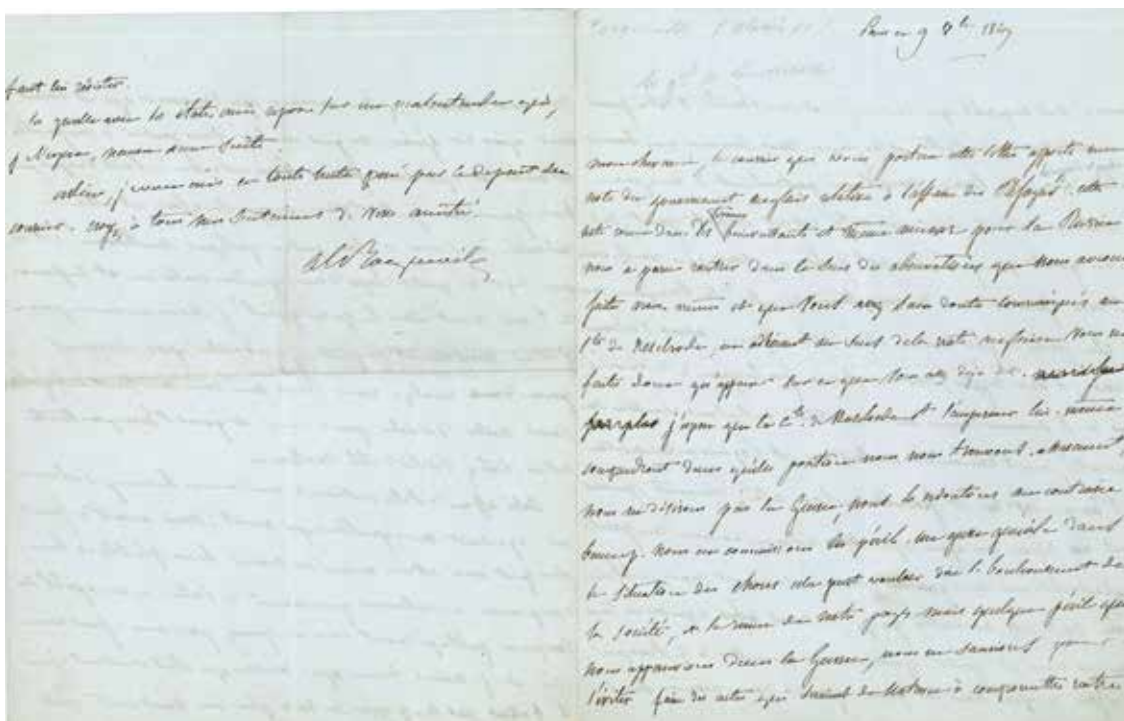 faut lui résister.
la querelle avec les états unis
adieu, je vous écris en toute hâte pressé par le départ du
courrier. croyez à tous mes sentiments de vraie amitié.
Paris ce 9 8bre 1849
mon cher ami, le courrier que vous portera cette lettre apporte une
note du gouvernement anglais relative à l'affaire des Réfugiés. cette
note conçue dans des termes bienveillants et même amicaux pour la Russie
nous a paru rentrer dans le sens des observations que nous avions
faites nous mêmes et que vous avez sans doute communiqués au
Cte de Nesselrode, en adhérant au sens de la note anglaise nous ne
faites donc qu'appuyer sur ce que vous avez déjà dit.
j'espère que le Cte de Nesselrode et l'empereur lui-même
comprendront dans quelle position nous nous trouvons. assurément,
nous ne désirons pas la Guerre, nous la redoutons au contraire
beaucoup. nous en connaissons les périls. une guerre générale dans
la situation des choses cela peut vouloir dire le bouleversement de
la société, et la ruine de notre pays mais quelque péril que
nous apparaisse dans la Guerre, nous ne saurions pour
l'éviter faire des actes qui seraient de nature à compromettre notre